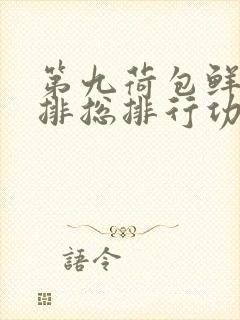 第九荷包鲜
排捴排行功
語令